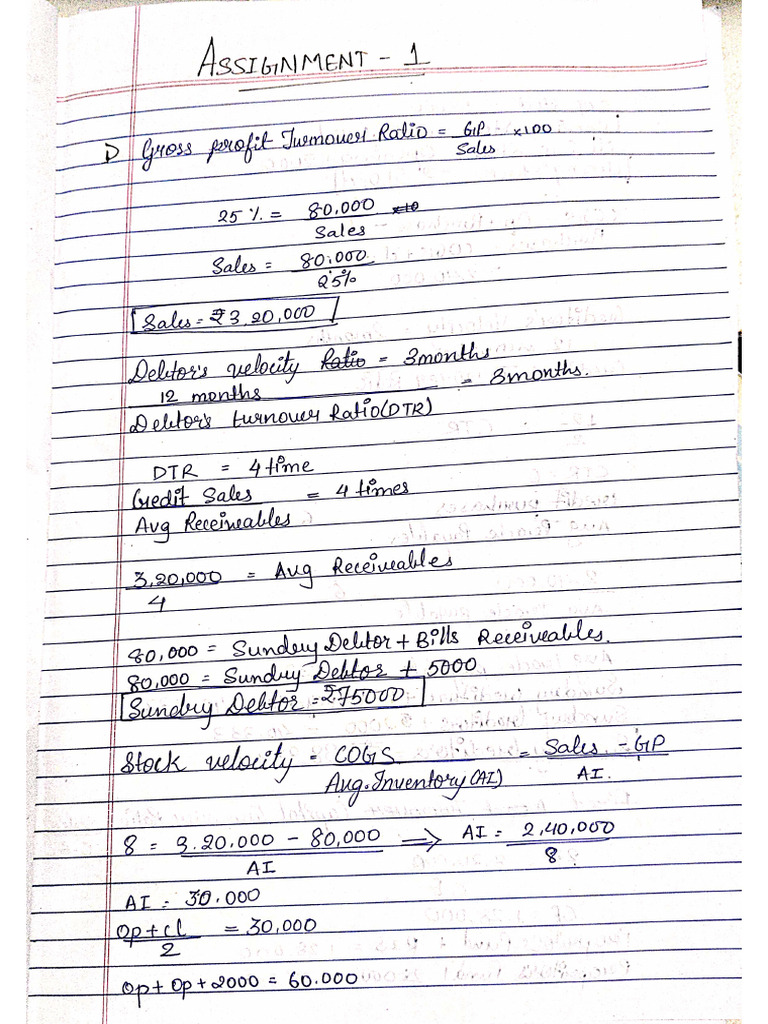 ASSIGNMENT - 1
1) Gross profit Turnover Ratio = GP/Sales ×100
25 % = 80,000/Sales ×10
Sales = 80,000/25%
Sales = ₹3,20,000
Debtor's velocity Ratio = 3months
12 months/Debtor's turnover Ratio(DTR) = 3months.
DTR = 4 time
Credit Sales/Avg Receiveables = 4 times
3,20,000/4 = Avg Receiveables
80,000 = Sundry Debtor + Bills Receiveables.
80,000 = Sundry Debtor + 5000
Sundry Debtor = ₹75000
Stock velocity = COGS/Avg.Inventory(AI) = Sales - GP/AI.
8 = 3,20,000 - 80,000/AI ⟹ AI = 2,40,000/8
AI = 30,000
Op + cl/2 = 30,000
Op + Op + 2000 = 60,000